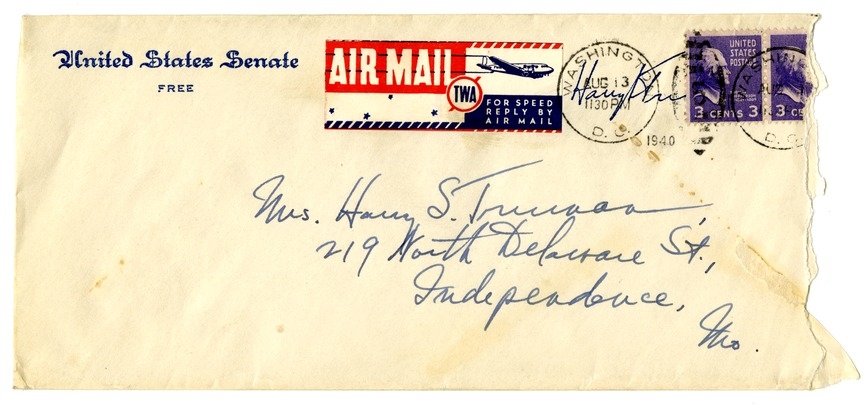 United States Senate
FREE
AIR MAIL
TWA
FOR SPEED
REPLY BY
AIR MAIL
WASHINGTON
AUG 13
1130 PM
D. C.
1940
Harry
UNITED
STATES
POSTAGE
3 CENTS 3
3 CE
WASHIN
AU
D. C.
Mrs. Harry S. Truman
219 North Delaware St.,
Independence,
Mo.